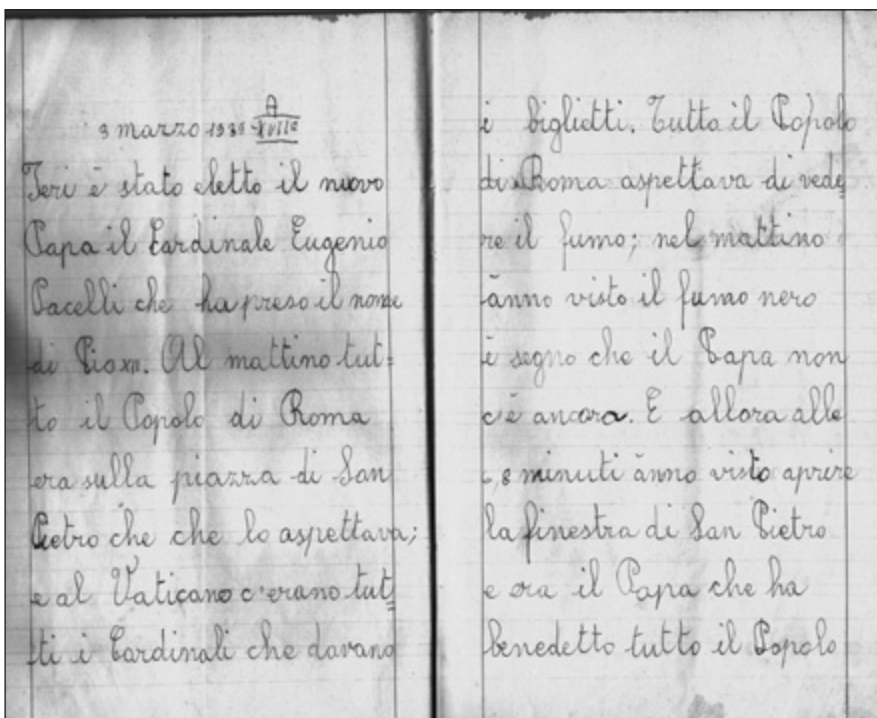 3 marzo 1939 A XVII
Ieri è stato eletto il nuovo
Papa il Cardinale Eugenio
Pacelli che ha preso il nome
di Pio XII. Al mattino tut=
to il Popolo di Roma
era sulla piazza di San
Pietro che che lo aspettava;
e al Vaticano c'erano tut=
ti i Cardinali che davano
i biglietti. Tutto il Popolo
di Roma aspettava di vede=
re il fumo; nel mattino
ànno visto il fumo nero
è segno che il Papa non
c'è ancora. E allora alle
6,8 minuti ànno visto aprire
la finestra di San Pietro
e era il Papa che ha
benedetto tutto il Popolo